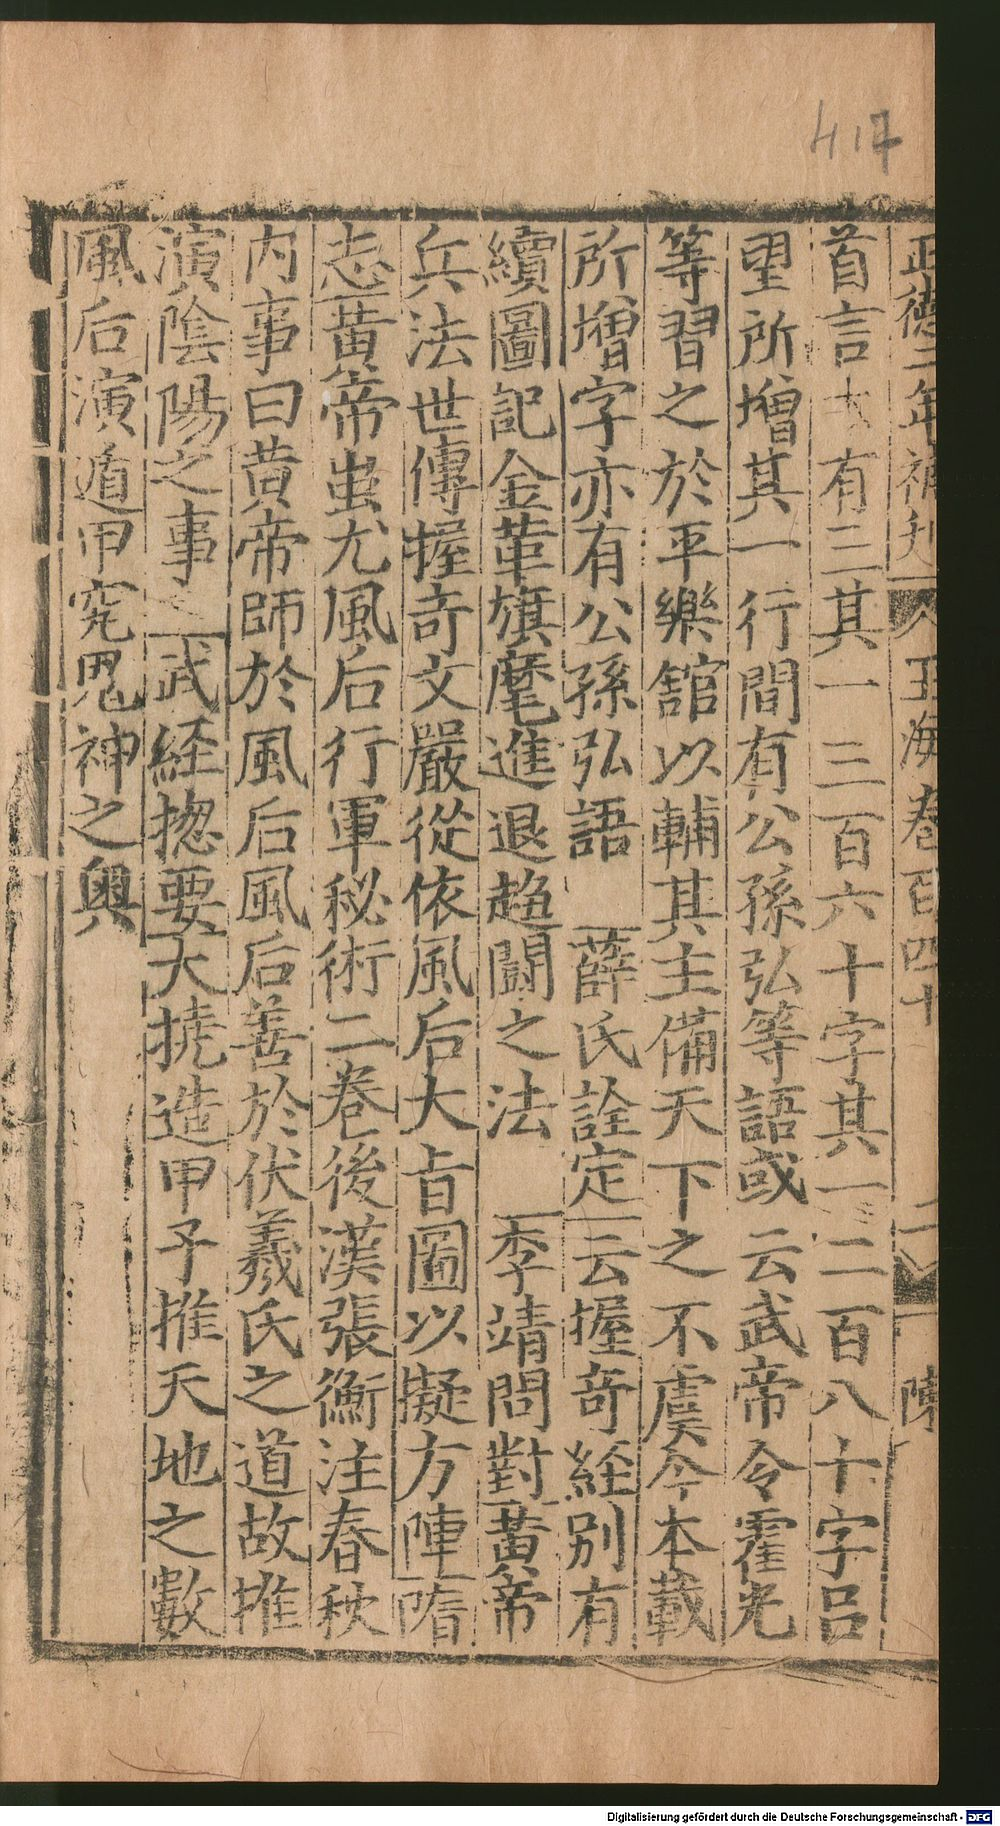 417
正德二年補刋 玉海卷百四十 二 陳
首言大有三其一三百六十字其一二百八十字呂
望所增其一行間有公孫弘等語或云武帝令霍光
等習之於平樂舘以輔其主備天下之不虞今本載
所增字亦有公孫弘語 薛氏詮定云握奇經别有
續圖記金革旗麾進退趋鬭之法 李靖問對黃帝
兵法世傳握奇文嚴從依風后大旨圖以擬方陣隋
志黃帝蚩尤風后行軍秘術二卷後漢張衡注春秋
内事曰黄帝師於風后風后善於伏羲氏之道故推
演陰陽之事 武経揔要大撓造甲子推天地之數
風后演遁甲究鬼神之奥
Digitalisierung gefördert durch die Deutsche Forschungsgemeinschaft - DFG